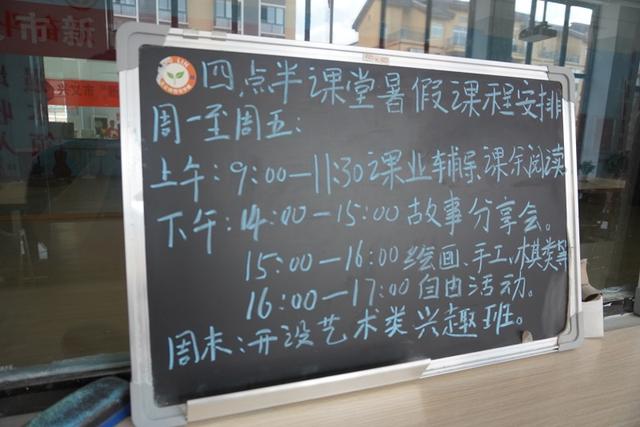 四点半课堂暑假课程安排
周一至周五:
上午:9:00—11:30课业辅导、课余阅读
下午:14:00—15:00故事分享会。
15:00—16:00绘画、手工、棋类等
16:00—17:00自由活动。
周末:开设艺术类兴趣班。